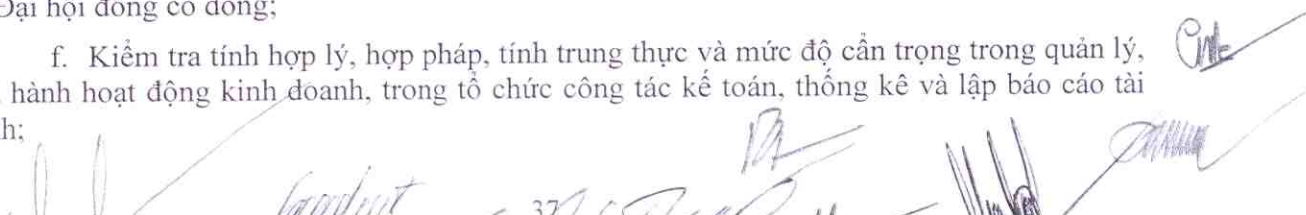 Đại hội đồng cổ đông;
f. Kiểm tra tính hợp lý, hợp pháp, tính trung thực và mức độ cẩn trọng trong quản lý,
hành hoạt động kinh doanh, trong tổ chức công tác kế toán, thống kê và lập báo cáo tài
h;
37